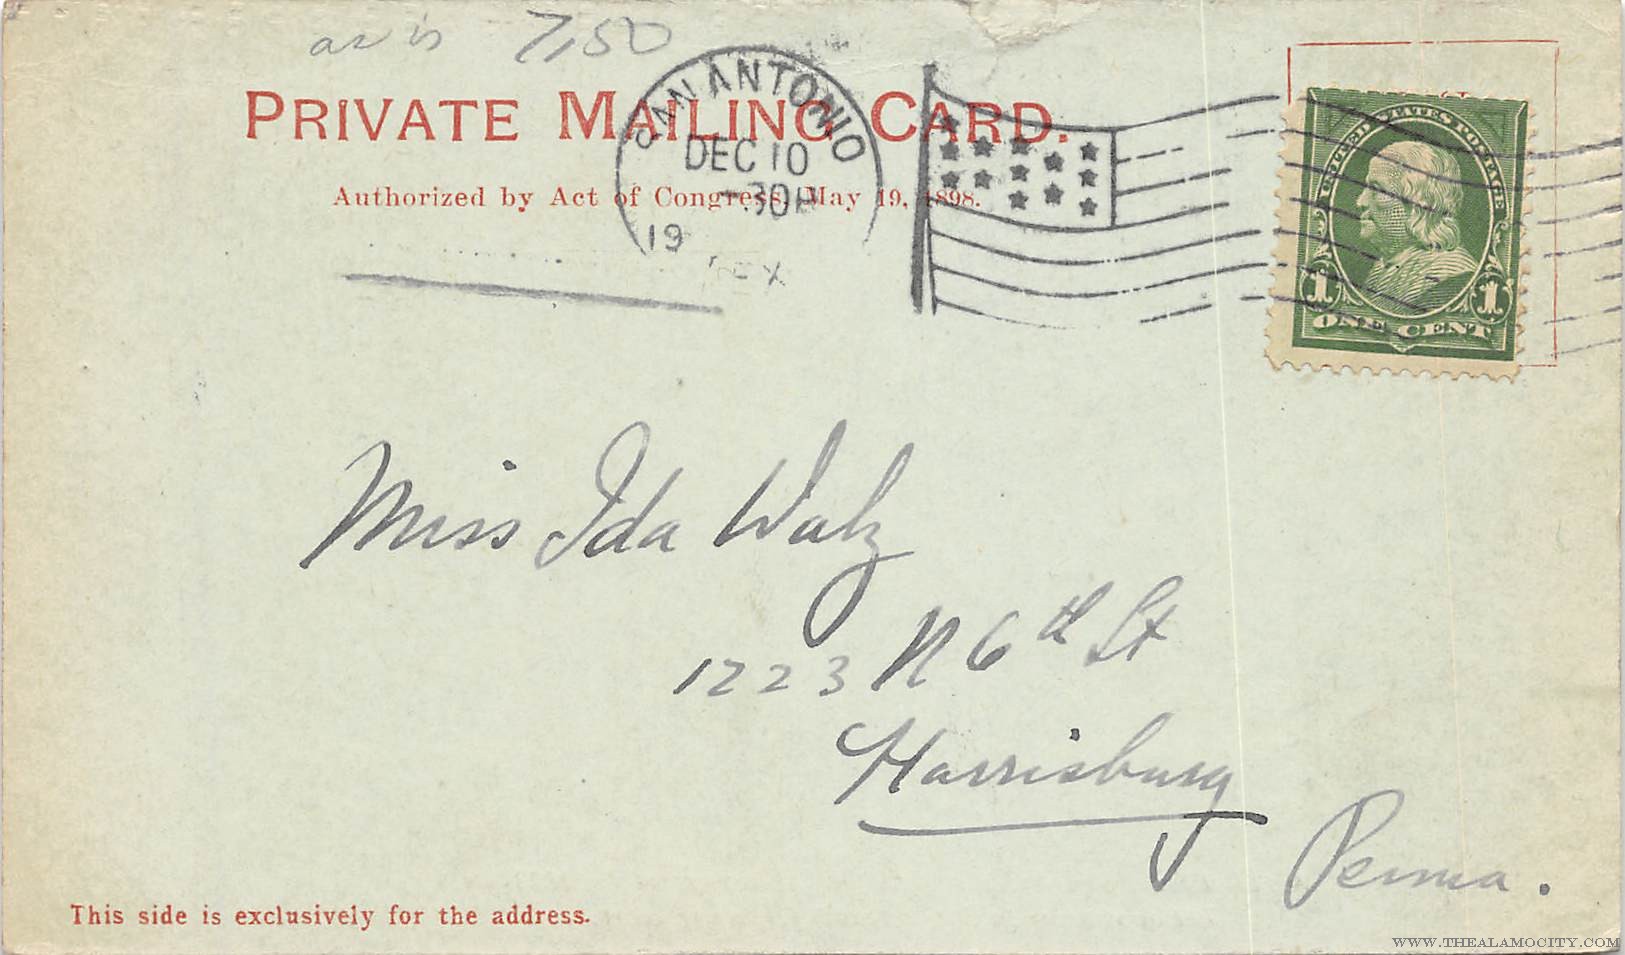 as is 7,50
PRIVATE MAILING CARD.
Authorized by Act of Congress, May 19, 1898.
SAN ANTONIO
DEC 10
30 P
19
TEX
UNITED STATES POSTAGE
1 1
ONE CENT
Miss Ida Walz
1223 N 6th St
Harrisburg
Penna.
This side is exclusively for the address.
WWW.THEALAMOCITY.COM